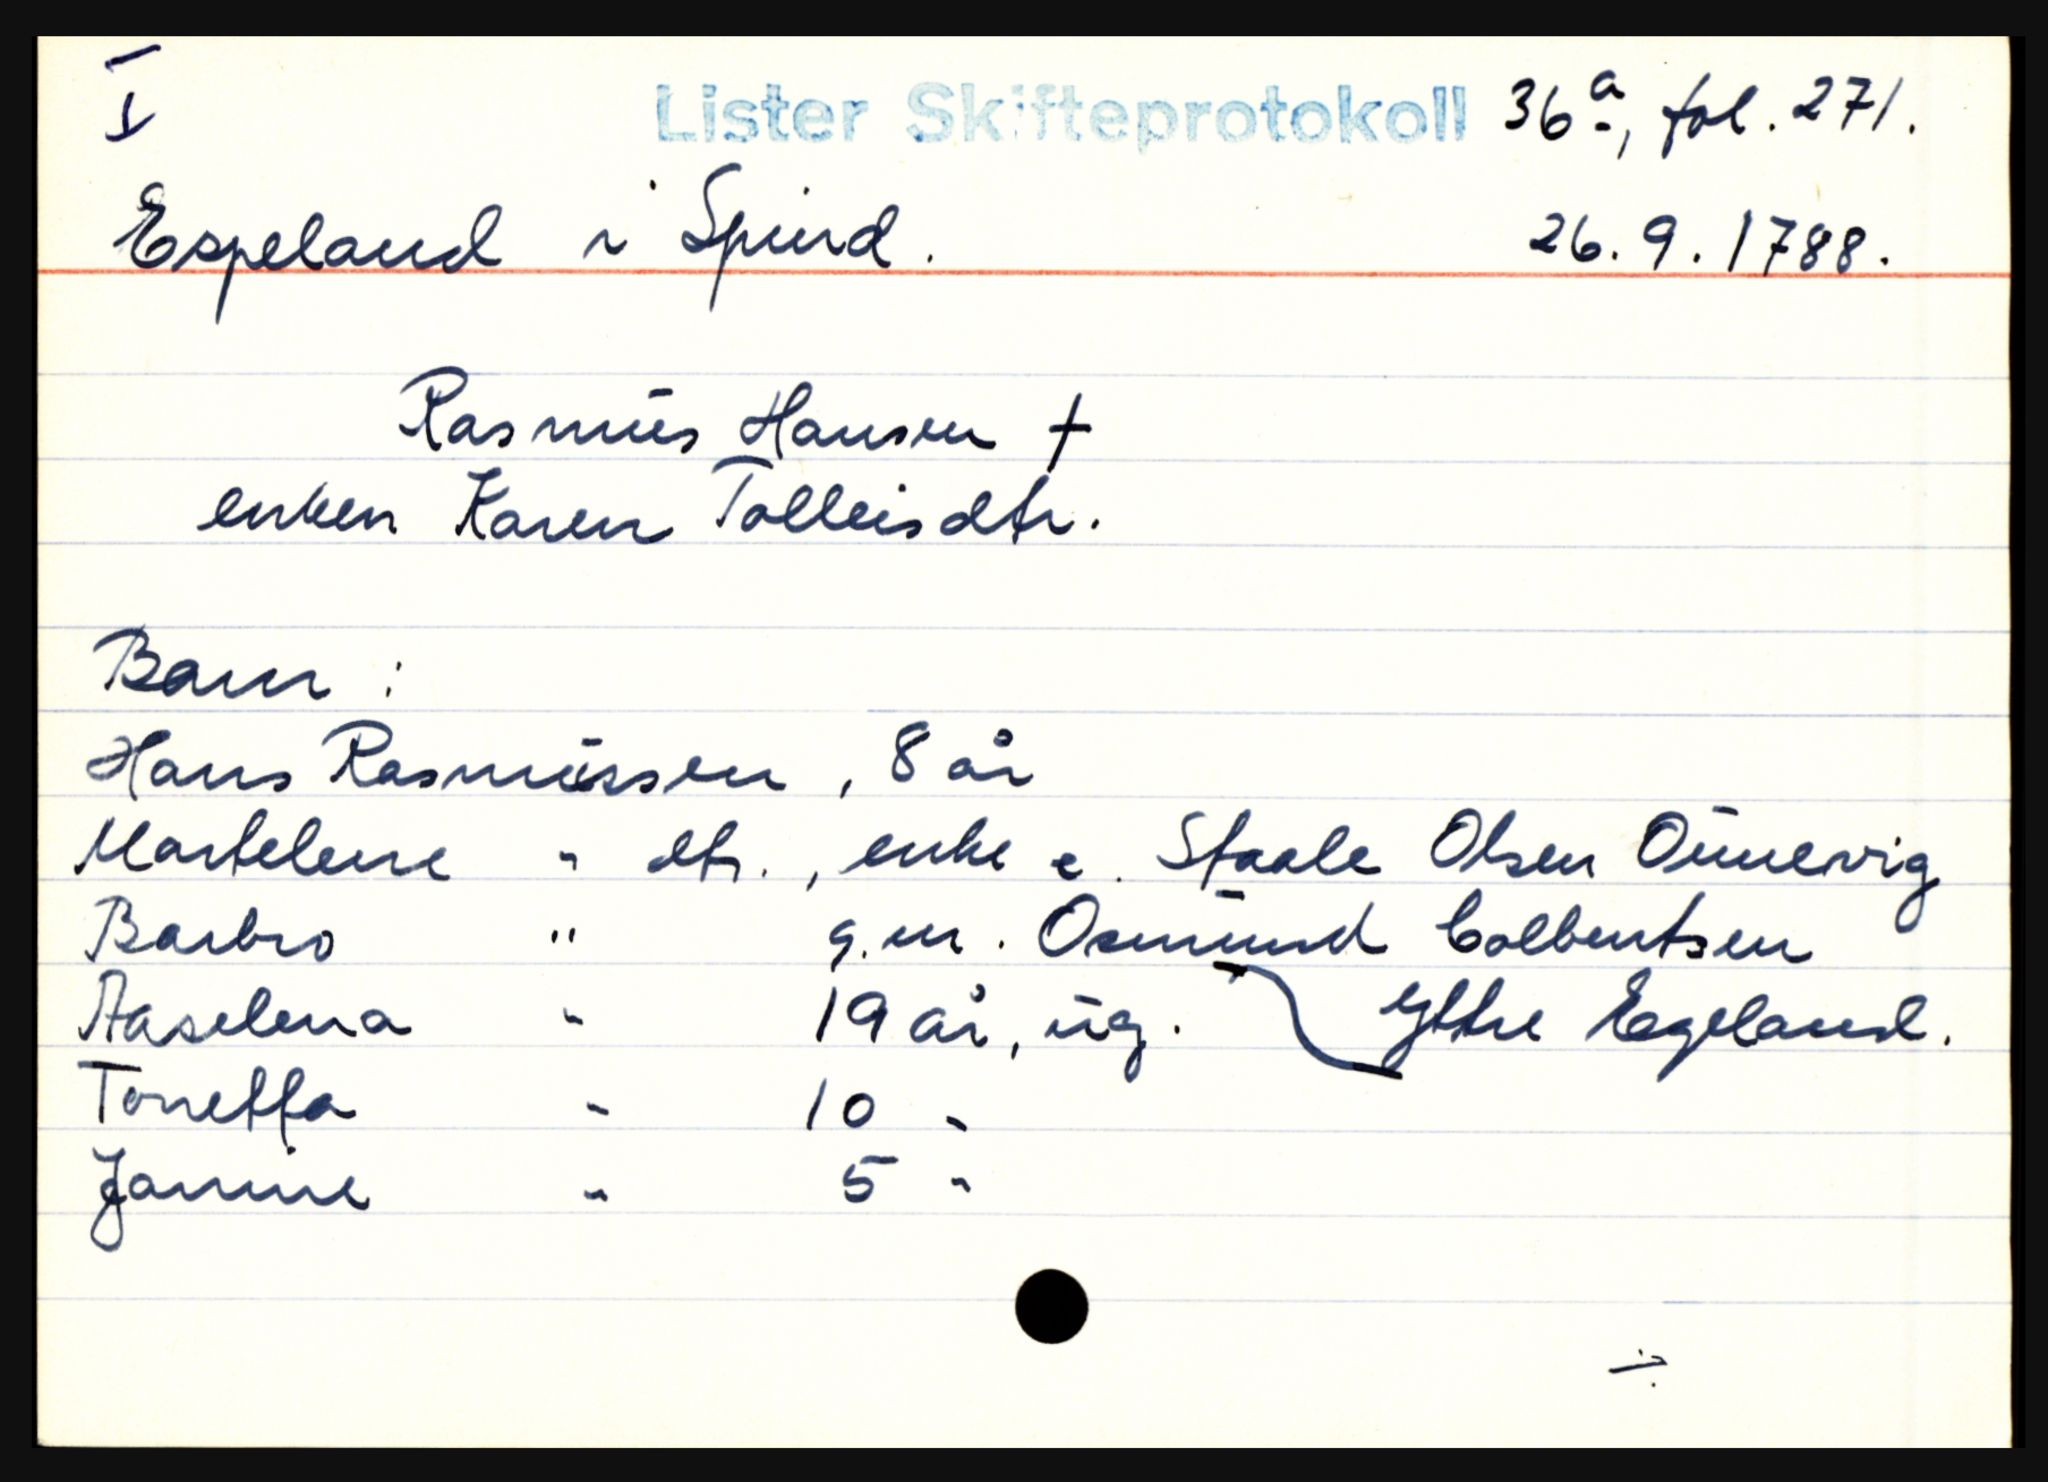 I
Lister Skifteprotokoll 36a, fol. 271.
Espeland i Spind. 26.9.1788.
Rasmus Hansen †
enken Karen Tolleisdtr.
Barn:
Hans Rasmussen, 8 år
Martelene " dtr., enke e. Staale Olsen Ounevig
Barbro " g.m. Osmund Colbentsen
Aaselena " 19 år, ug. Yttre Egeland.
Tonetta " 10 "
Janine " 5 "